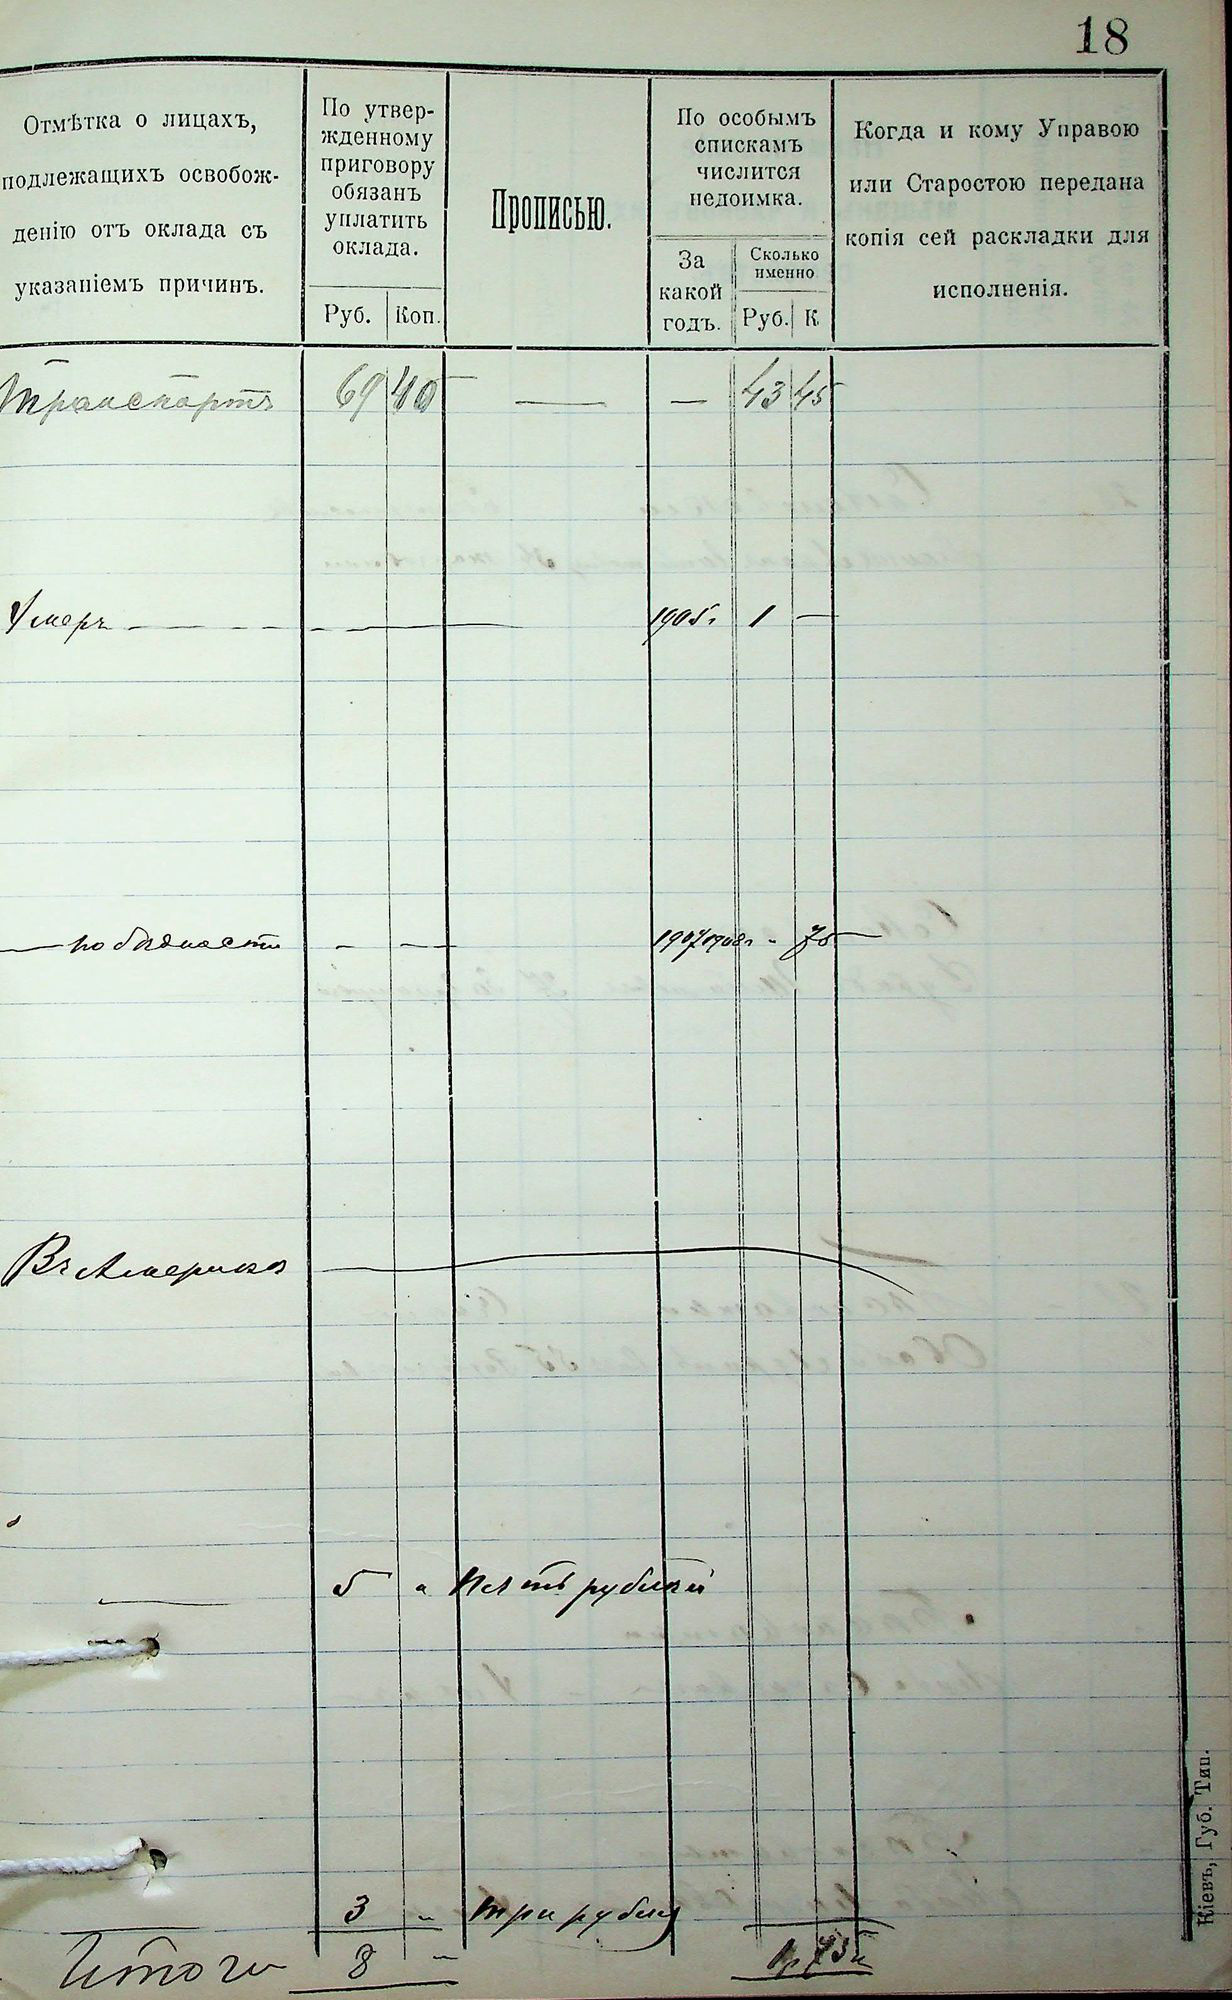 18
Отмѣтка о лицахъ,
подлежащихъ освобож-
денію отъ оклада съ
указаніемъ причинъ.
По утвер-
жденному
приговору
обязанъ
уплатить
оклада.
Руб. Коп.
Прописью.
По особымъ
спискамъ
числится
недоимка.
За
какой
годъ.
Сколько
именно
Руб. К
Когда и кому Управою
или Старостою передана
копія сей раскладки для
исполненія.
Транспортъ 69 40 — — 43 45
Умеръ — — — — 1905г 1 —
— по бѣдности - - — 1907 1908г „ 75 —
Въ Америкѣ
— 5 „ Пять рублей
3 „ три рубля
Итого 8 — 1р 75к
Кіевъ, Губ. Тип.